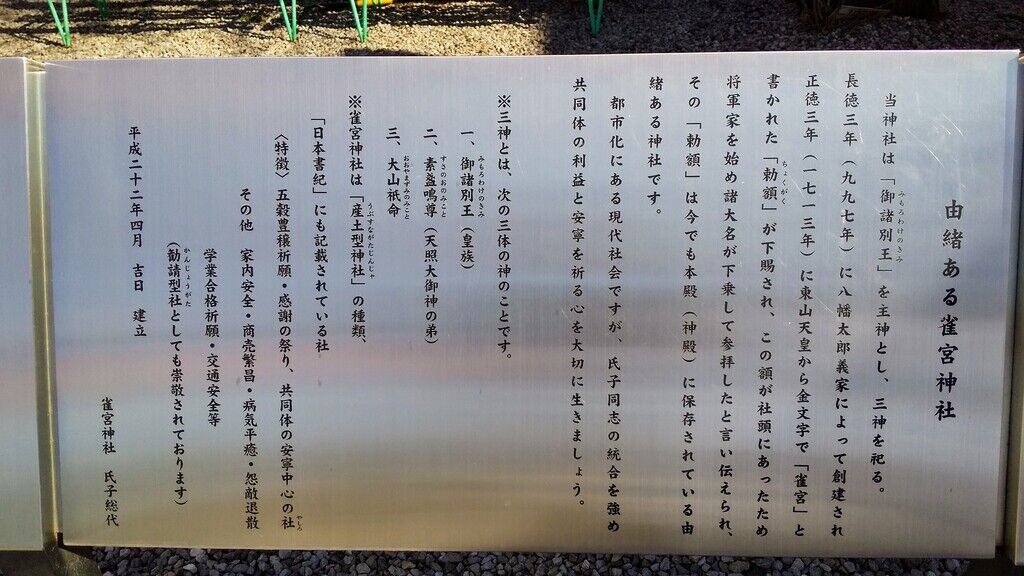 由緒ある雀宮神社
当神社は「御諸別王」を主神とし、三神を祀る。
みもろわけのきみ
長徳三年(九九七年)に八幡太郎義家によって創建され
正徳三年(一七一三年)に東山天皇から金文字で「雀宮」と
書かれた「勅額」が下賜され、この額が社頭にあったため
ちょくがく
将軍家を始め諸大名が下乗して参拝したと言い伝えられ、
その「勅額」は今でも本殿(神殿)に保存されている由
緒ある神社です。
都市化にある現代社会ですが、氏子同志の統合を強め
共同体の利益と安寧を祈る心を大切に生きましょう。
※三神とは、次の三体の神のことです。
一、御諸別王(皇族)
みもろわけのきみ
二、素盞鳴尊(天照大御神の弟)
すさのおのみこと
三、大山祇命
おおやまずみのみこと
※雀宮神社は「産土型神社」の種類、
うぶすながたじんじゃ
「日本書紀」にも記載されている社
〈特徴〉五穀豊穣祈願・感謝の祭り、共同体の安寧中心の社
やしろ
その他 家内安全・商売繁昌・病気平癒・怨敵退散
学業合格祈願・交通安全等
(勧請型社としても崇敬されております)
かんじょうがた
平成二十二年四月 吉日 建立
雀宮神社 氏子総代